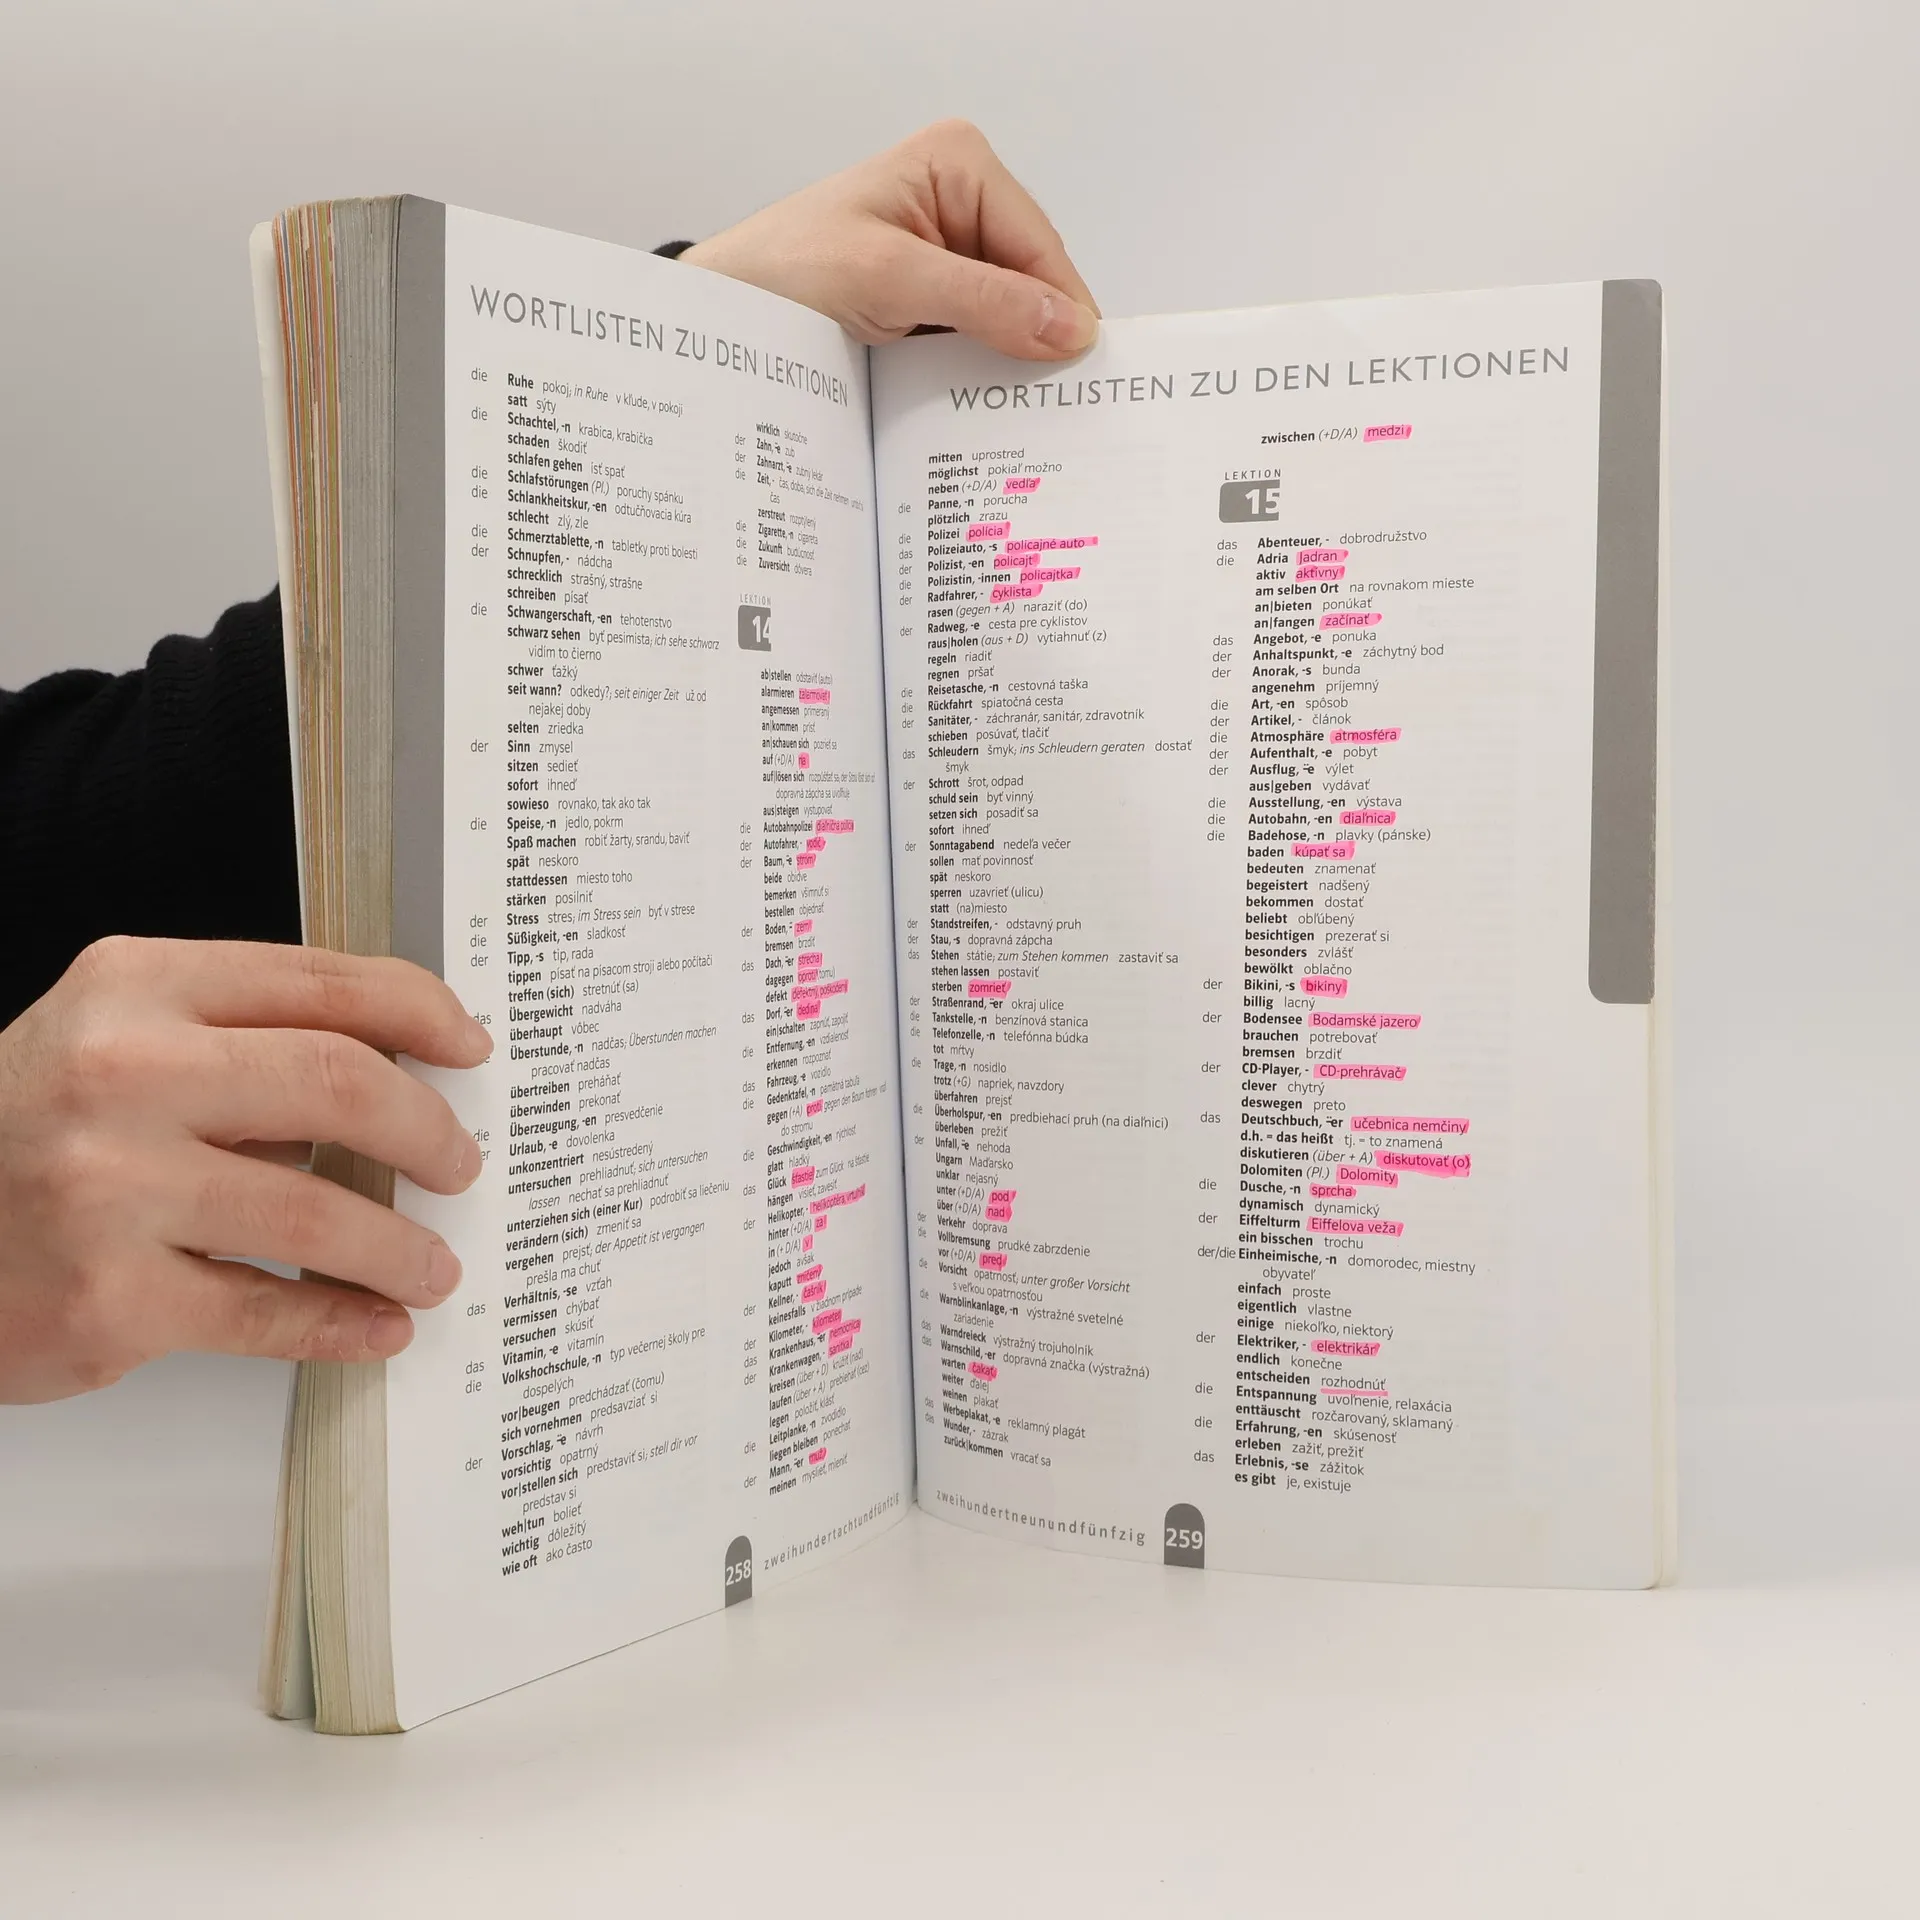 WORTLISTEN ZU DEN LEKTIONEN
die Ruhe pokoj; in Ruhe v kľude, v pokoji
satt sýty
die Schachtel, -n krabica, krabička
schaden škodiť
schlafen gehen ísť spať
die Schlafstörungen (Pl.) poruchy spánku
die Schlankheitskur, -en odtučňovacia kúra
schlecht zlý, zle
die Schmerztablette, -n tabletky proti bolesti
der Schnupfen, - nádcha
schrecklich strašný, strašne
schreiben písať
die Schwangerschaft, -en tehotenstvo
schwarz sehen byť pesimista; ich sehe schwarz
vidím to čierno
schwer ťažký
seit wann? odkedy?; seit einiger Zeit už od
nejakej doby
selten zriedka
der Sinn zmysel
sitzen sedieť
sofort ihneď
sowieso rovnako, tak ako tak
die Speise, -n jedlo, pokrm
Spaß machen robiť žarty, srandu, baviť
spät neskoro
stattdessen miesto toho
stärken posilniť
der Stress stres; im Stress sein byť v strese
die Süßigkeit, -en sladkosť
der Tipp, -s tip, rada
tippen písať na písacom stroji alebo počítači
treffen (sich) stretnúť (sa)
das Übergewicht nadváha
überhaupt vôbec
Überstunde, -n nadčas; Überstunden machen
pracovať nadčas
übertreiben preháňať
überwinden prekonať
die Überzeugung, -en presvedčenie
Urlaub, -e dovolenka
unkonzentriert nesústredený
untersuchen prehliadnuť; sich untersuchen
lassen nechať sa prehliadnuť
unterziehen sich (einer Kur) podrobiť sa liečeniu
verändern (sich) zmeniť sa
vergehen prejsť; der Appetit ist vergangen
prešla ma chuť
das Verhältnis, -se vzťah
vermissen chýbať
versuchen skúsiť
das Vitamin, -e vitamín
die Volkshochschule, -n typ večernej školy pre
dospelých
vor|beugen predchádzať (čomu)
sich vornehmen predsavziať si
der Vorschlag, -̈e návrh
vorsichtig opatrný
vor|stellen sich predstaviť si; stell dir vor
predstav si
weh|tun bolieť
wichtig dôležitý
wie oft ako často
wirklich skutočne
der Zahn, -̈e zub
der Zahnarzt, -̈e zubný lekár
die Zeit, - čas, doba; sich die Zeit nehmen
čas
zerstreut rozptýlený
die Zigarette, -n cigareta
die Zukunft budúcnosť
die Zuversicht dôvera
LEKTION
14
ab|stellen odstaviť (auto)
alarmieren zalarmovať
angemessen primeraný
an|kommen prísť
an|schauen sich pozrieť sa
auf (+D/A) na
auf|lösen sich rozpúšťať sa; der Stau löst sich auf
dopravná zápcha sa uvoľňuje
aus|steigen vystupovať
die Autobahnpolizei diaľničná polícia
der Autofahrer, - vodič
der Baum, -̈e strom
beide obidve
bemerken všimnúť si
bestellen objednať
der Boden, -̈ zem
bremsen brzdiť
das Dach, -̈er strecha
dagegen oproti (tomu)
defekt defektný, poškodený
das Dorf, -̈er dedina
ein|schalten zapnúť, zapojiť
die Entfernung, -en vzdialenosť
erkennen rozpoznať
das Fahrzeug, -e vozidlo
die Gedenktafel, -n pamätná tabuľa
gegen (+A) proti gegen den Baum fahren
do stromu
die Geschwindigkeit, -en rýchlosť
glatt hladký
das Glück šťastie zum Glück na šťastie
hängen visieť, zavesiť
der Helikopter, - helikoptéra, vrtuľník
hinter (+D/A) za
in (+ D/A) v
jedoch avšak
kaputt zničený
der Kellner, - čašník
keinesfalls v žiadnom prípade
der Kilometer, - kilometer
das Krankenhaus, -̈er nemocnica
der Krankenwagen, - sanitka
kreisen (über + D) krúžiť (nad)
laufen (über + A) prebiehať (cez)
legen položiť, klásť
die Leitplanke, -n zvodidlo
liegen bleiben ponechať
der Mann, -̈er muž
meinen myslieť, mieniť
258 zweihundertachtundfünfzig
WORTLISTEN ZU DEN LEKTIONEN
mitten uprostred
möglichst pokiaľ možno
neben (+D/A) vedľa
die Panne, -n porucha
plötzlich zrazu
die Polizei polícia
das Polizeiauto, -s policajné auto
der Polizist, -en policajt
die Polizistin, -innen policajtka
der Radfahrer, - cyklista
rasen (gegen + A) naraziť (do)
der Radweg, -e cesta pre cyklistov
raus|holen (aus + D) vytiahnuť (z)
regeln riadiť
regnen pršať
die Reisetasche, -n cestovná taška
die Rückfahrt spiatočná cesta
der Sanitäter, - záchranár, sanitár, zdravotník
schieben posúvať, tlačiť
das Schleudern šmyk; ins Schleudern geraten dostať
šmyk
der Schrott šrot, odpad
schuld sein byť vinný
setzen sich posadiť sa
sofort ihneď
der Sonntagabend nedeľa večer
sollen mať povinnosť
spät neskoro
sperren uzavrieť (ulicu)
statt (na)miesto
der Standstreifen, - odstavný pruh
der Stau, -s dopravná zápcha
das Stehen státie; zum Stehen kommen zastaviť sa
stehen lassen postaviť
sterben zomrieť
der Straßenrand, -̈er okraj ulice
die Tankstelle, -n benzínová stanica
die Telefonzelle, -n telefónna búdka
tot mŕtvy
die Trage, -n nosidlo
trotz (+G) napriek, navzdory
überfahren prejsť
die Überholspur, -en predbiehací pruh (na diaľnici)
überleben prežiť
der Unfall, -̈e nehoda
Ungarn Maďarsko
unklar nejasný
unter (+D/A) pod
über (+D/A) nad
der Verkehr doprava
die Vollbremsung prudké zabrzdenie
vor (+D/A) pred
die Vorsicht opatrnosť; unter großer Vorsicht
s veľkou opatrnosťou
die Warnblinkanlage, -n výstražné svetelné
zariadenie
das Warndreieck výstražný trojuholník
das Warnschild, -er dopravná značka (výstražná)
warten čakať
weiter ďalej
weinen plakať
das Werbeplakat, -e reklamný plagát
das Wunder, - zázrak
zurück|kommen vracať sa
zwischen (+D/A) medzi
LEKTION
15
das Abenteuer, - dobrodružstvo
die Adria Jadran
aktiv aktívny
am selben Ort na rovnakom mieste
an|bieten ponúkať
an|fangen začínať
das Angebot, -e ponuka
der Anhaltspunkt, -e záchytný bod
der Anorak, -s bunda
angenehm príjemný
die Art, -en spôsob
der Artikel, - článok
die Atmosphäre atmosféra
der Aufenthalt, -e pobyt
der Ausflug, -̈e výlet
aus|geben vydávať
die Ausstellung, -en výstava
die Autobahn, -en diaľnica
die Badehose, -n plavky (pánske)
baden kúpať sa
bedeuten znamenať
begeistert nadšený
bekommen dostať
beliebt obľúbený
besichtigen prezerať si
besonders zvlášť
bewölkt oblačno
der Bikini, -s bikiny
billig lacný
der Bodensee Bodamské jazero
brauchen potrebovať
bremsen brzdiť
der CD-Player, - CD-prehrávač
clever chytrý
deswegen preto
das Deutschbuch, -̈er učebnica nemčiny
d.h. = das heißt tj. = to znamená
diskutieren (über + A) diskutovať (o)
Dolomiten (Pl.) Dolomity
die Dusche, -n sprcha
dynamisch dynamický
der Eiffelturm Eiffelova veža
ein bisschen trochu
der/die Einheimische, -n domorodec, miestny
obyvateľ
einfach proste
eigentlich vlastne
einige niekoľko, niektorý
der Elektriker, - elektrikár
endlich konečne
entscheiden rozhodnúť
die Entspannung uvoľnenie, relaxácia
enttäuscht rozčarovaný, sklamaný
die Erfahrung, -en skúsenosť
erleben zažiť, prežiť
das Erlebnis, -se zážitok
es gibt je, existuje
zweihundertneunundfünfzig 259